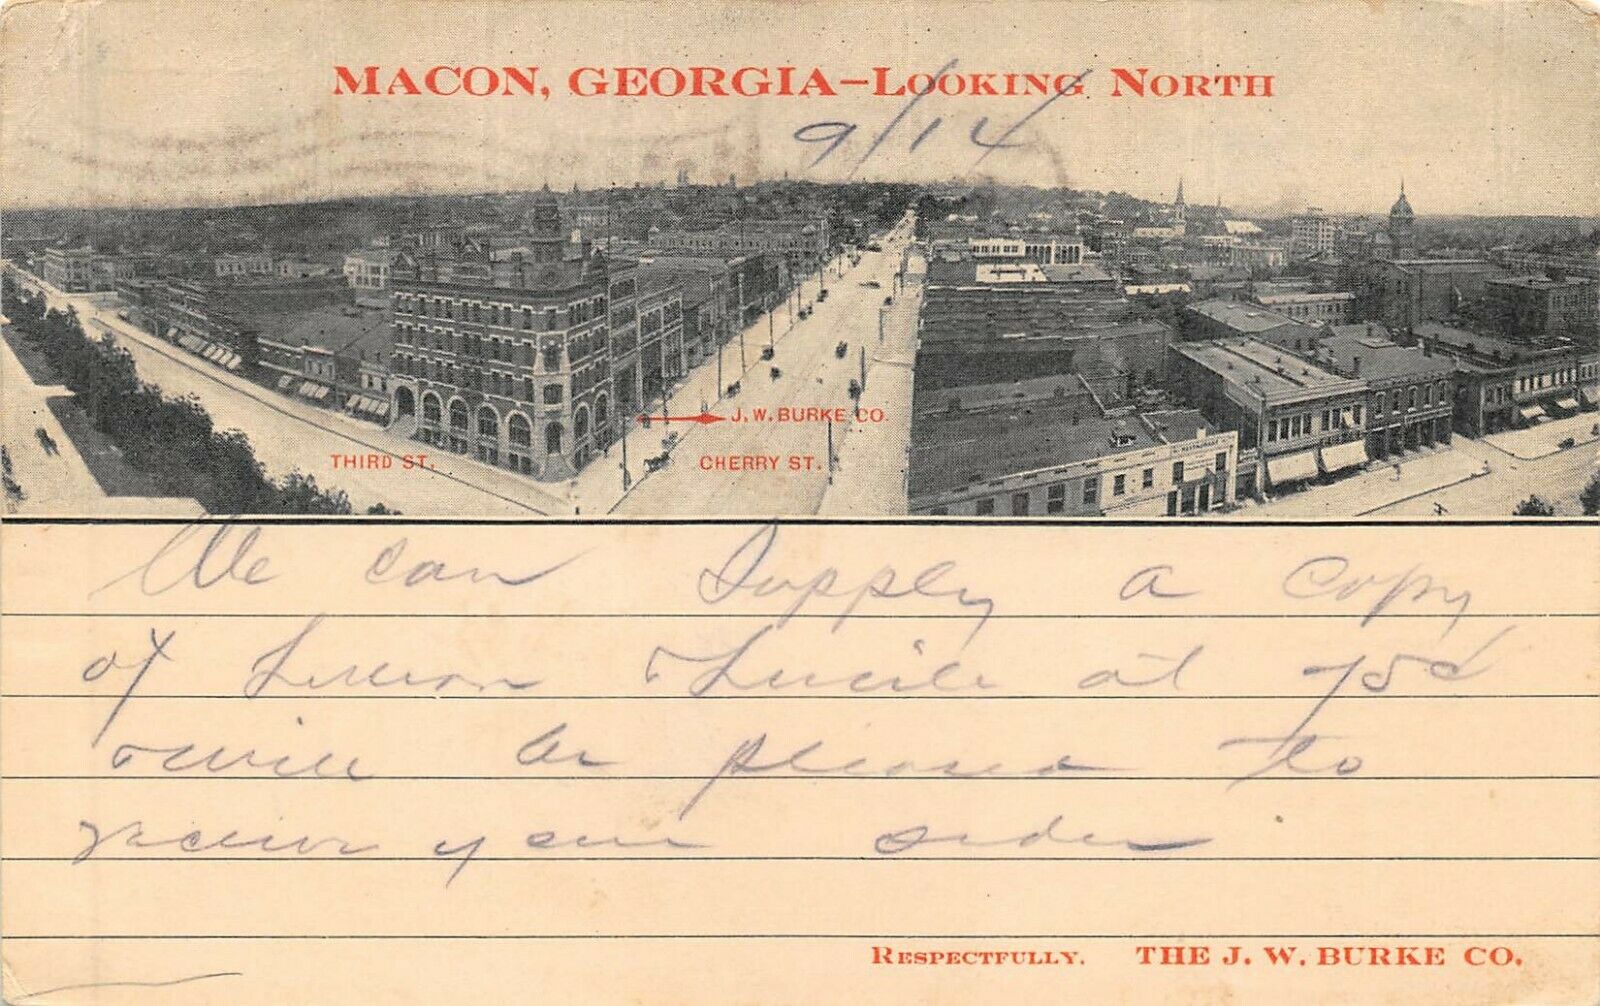 MACON, GEORGIA—LOOKING NORTH
9/14
J. W. BURKE CO.
THIRD ST.
CHERRY ST.
We can supply a copy
of & Lucile at 75¢
& will be pleased to
receive your order
RESPECTFULLY. THE J. W. BURKE CO.